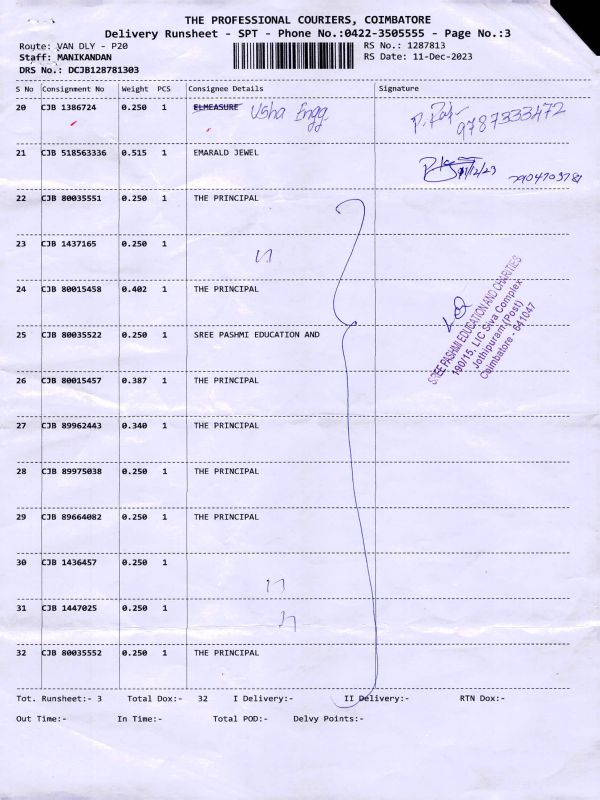 THE PROFESSIONAL COURIERS, COIMBATORE
Delivery Runsheet - SPT - Phone No.:0422-3505555 - Page No.:3
Route: VAN DLY - P20 RS No.: 1287813
Staff: MANIKANDAN RS Date: 11-Dec-2023
DRS No.: DCJB128781303
S No Consignment No Weight PCS Consignee Details Signature
20 CJB 1386724 0.250 1 ELMEASURE Usha Engg 9787333472
21 CJB 518563336 0.515 1 EMARALD JEWEL
22 CJB 80035551 0.250 1 THE PRINCIPAL
23 CJB 1437165 0.250 1
24 CJB 80015458 0.402 1 THE PRINCIPAL
25 CJB 80035522 0.250 1 SREE PASHMI EDUCATION AND
SREE PASHMI EDUCATION AND CHARITIES
190/15, LIC Siva Complex
Jothipuram (Post)
Coimbatore - 641047
26 CJB 80015457 0.387 1 THE PRINCIPAL
27 CJB 89962443 0.340 1 THE PRINCIPAL
28 CJB 89975038 0.250 1 THE PRINCIPAL
29 CJB 89664082 0.250 1 THE PRINCIPAL
30 CJB 1436457 0.250 1
31 CJB 1447025 0.250 1
32 CJB 80035552 0.250 1 THE PRINCIPAL
Tot. Runsheet:- 3 Total Dox:- 32 I Delivery:- II Delivery:- RTN Dox:-
Out Time:- In Time:- Total POD:- Delvy Points:-